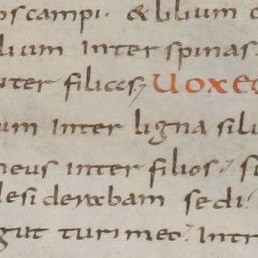 os campi · & lilium
lium inter spinas
nter filices; Uox
um inter ligna silu
meus inter filios;
desiderabam sedi
gut turi meo; Intr